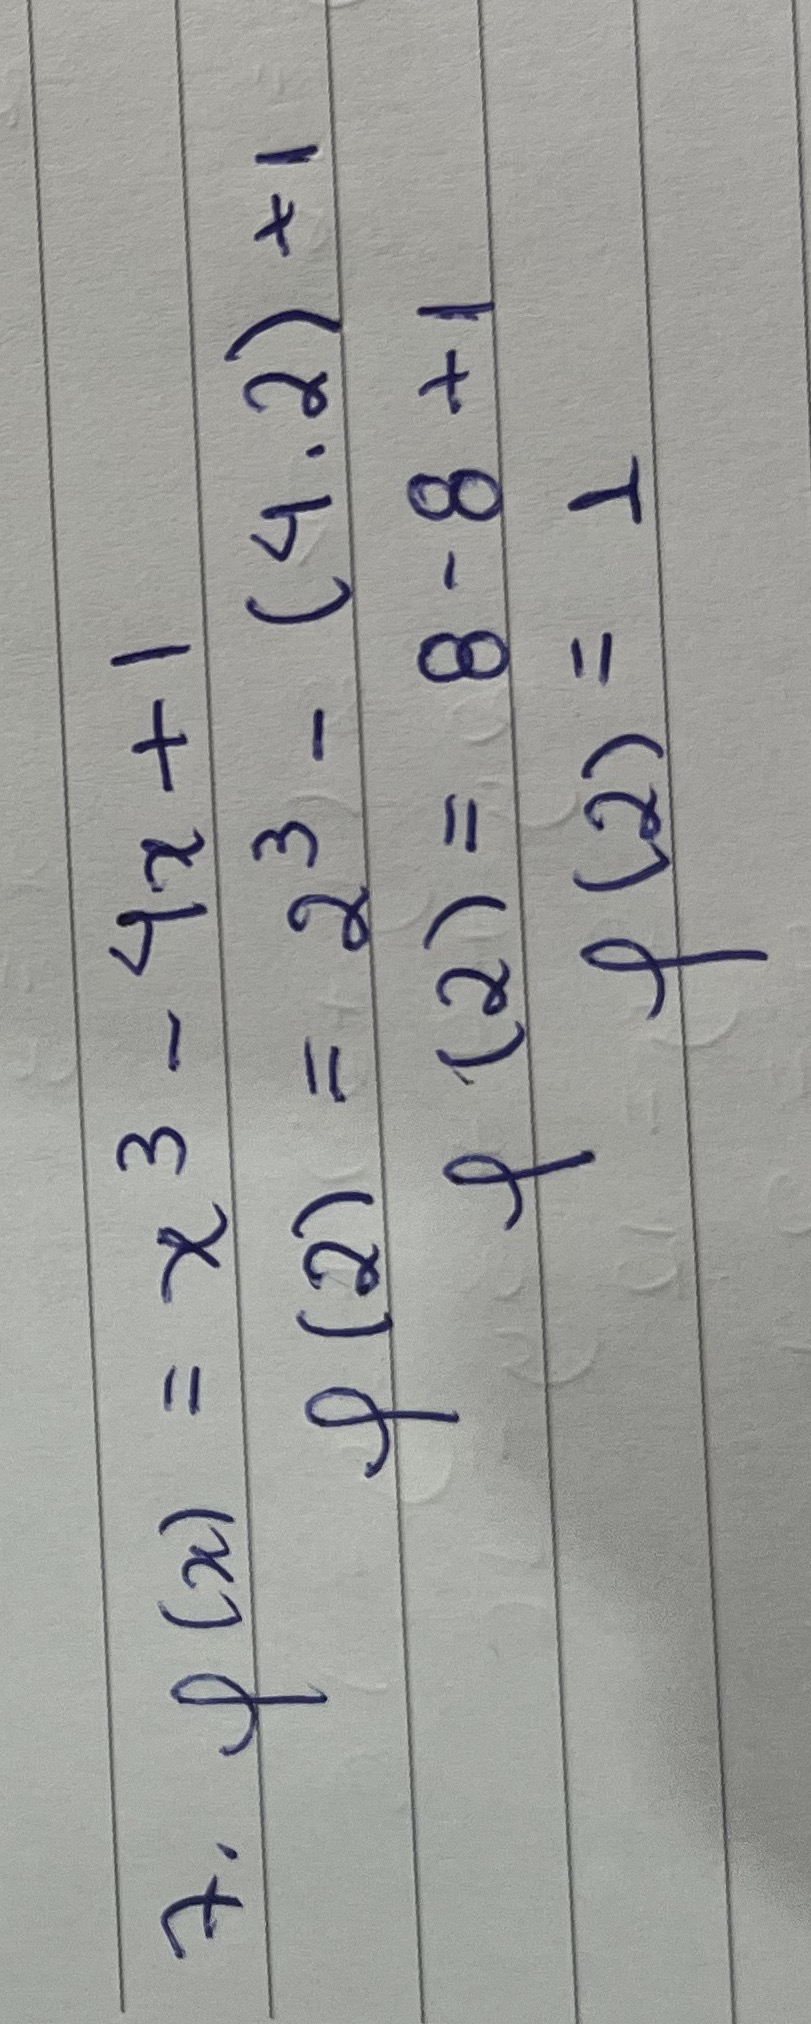 7. φ(x) = x³ - 4x + 1
φ(2) = 2³ - (4.2) + 1
φ(2) = 8 - 8 + 1
φ(2) = 1